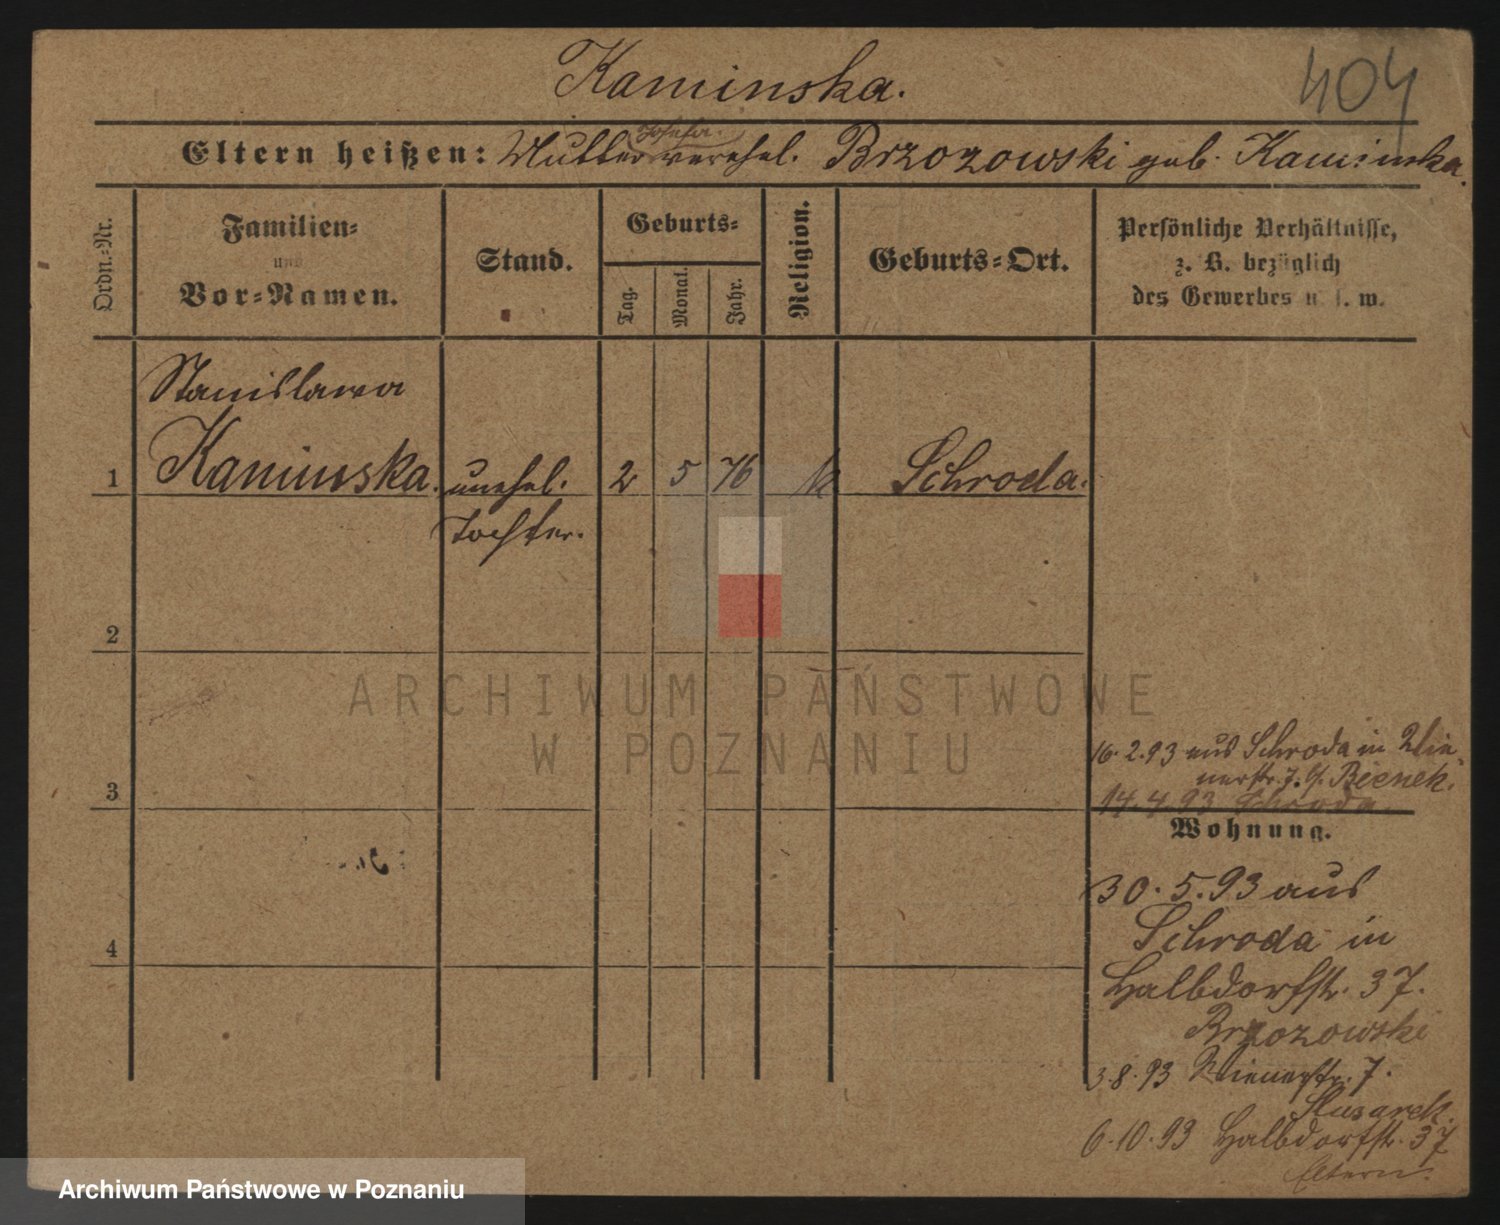 Kaminska.
404
Eltern heißen: Mutter Josefa verehel. Brzozowski geb. Kaminska.
Ordn.-Nr.
Familien-
und
Vor-Namen.
Stand.
Geburts-
Tag.
Monat.
Jahr.
Religion.
Geburts-Ort.
Persönliche Verhältnisse,
z. B. bezüglich
des Gewerbes u. s. w.
Stanislawa
1 Kaminska. unehel. 2 5 76 k Schroda.
Tochter.
2
ARCHIWUM PAŃSTWOWE
W POZNANIU
16.2.93 aus Schroda in Wie-
nerstr. 7. b/. Bienek.
3
14.4.93 Schroda.
Wohnung.
30.5.93 aus
Schroda in
4
Halbdorfstr. 37.
Brzozowski
3.8.93 Wienerstr. 7.
Slusarek.
6.10.93 Halbdorfstr. 37
Eltern.
Archiwum Państwowe w Poznaniu